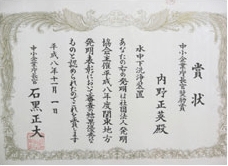 賞状
中小企業庁長官奨励賞
内野正英殿
水中下洗浄装置
あなたの右の発明は社団法人発明
協会主催平成八年度関東地方
発明表彰において審査の結果優秀な
ものと認められたのでこれを賞します
平成八年十一月一日
中小企業庁長官
石黒正大